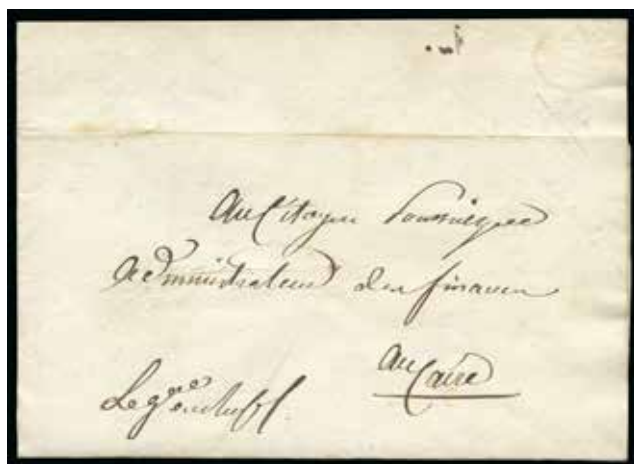 Au Citoyen Poussielgue
administrateur des finances
au Caire
Le gral en chef